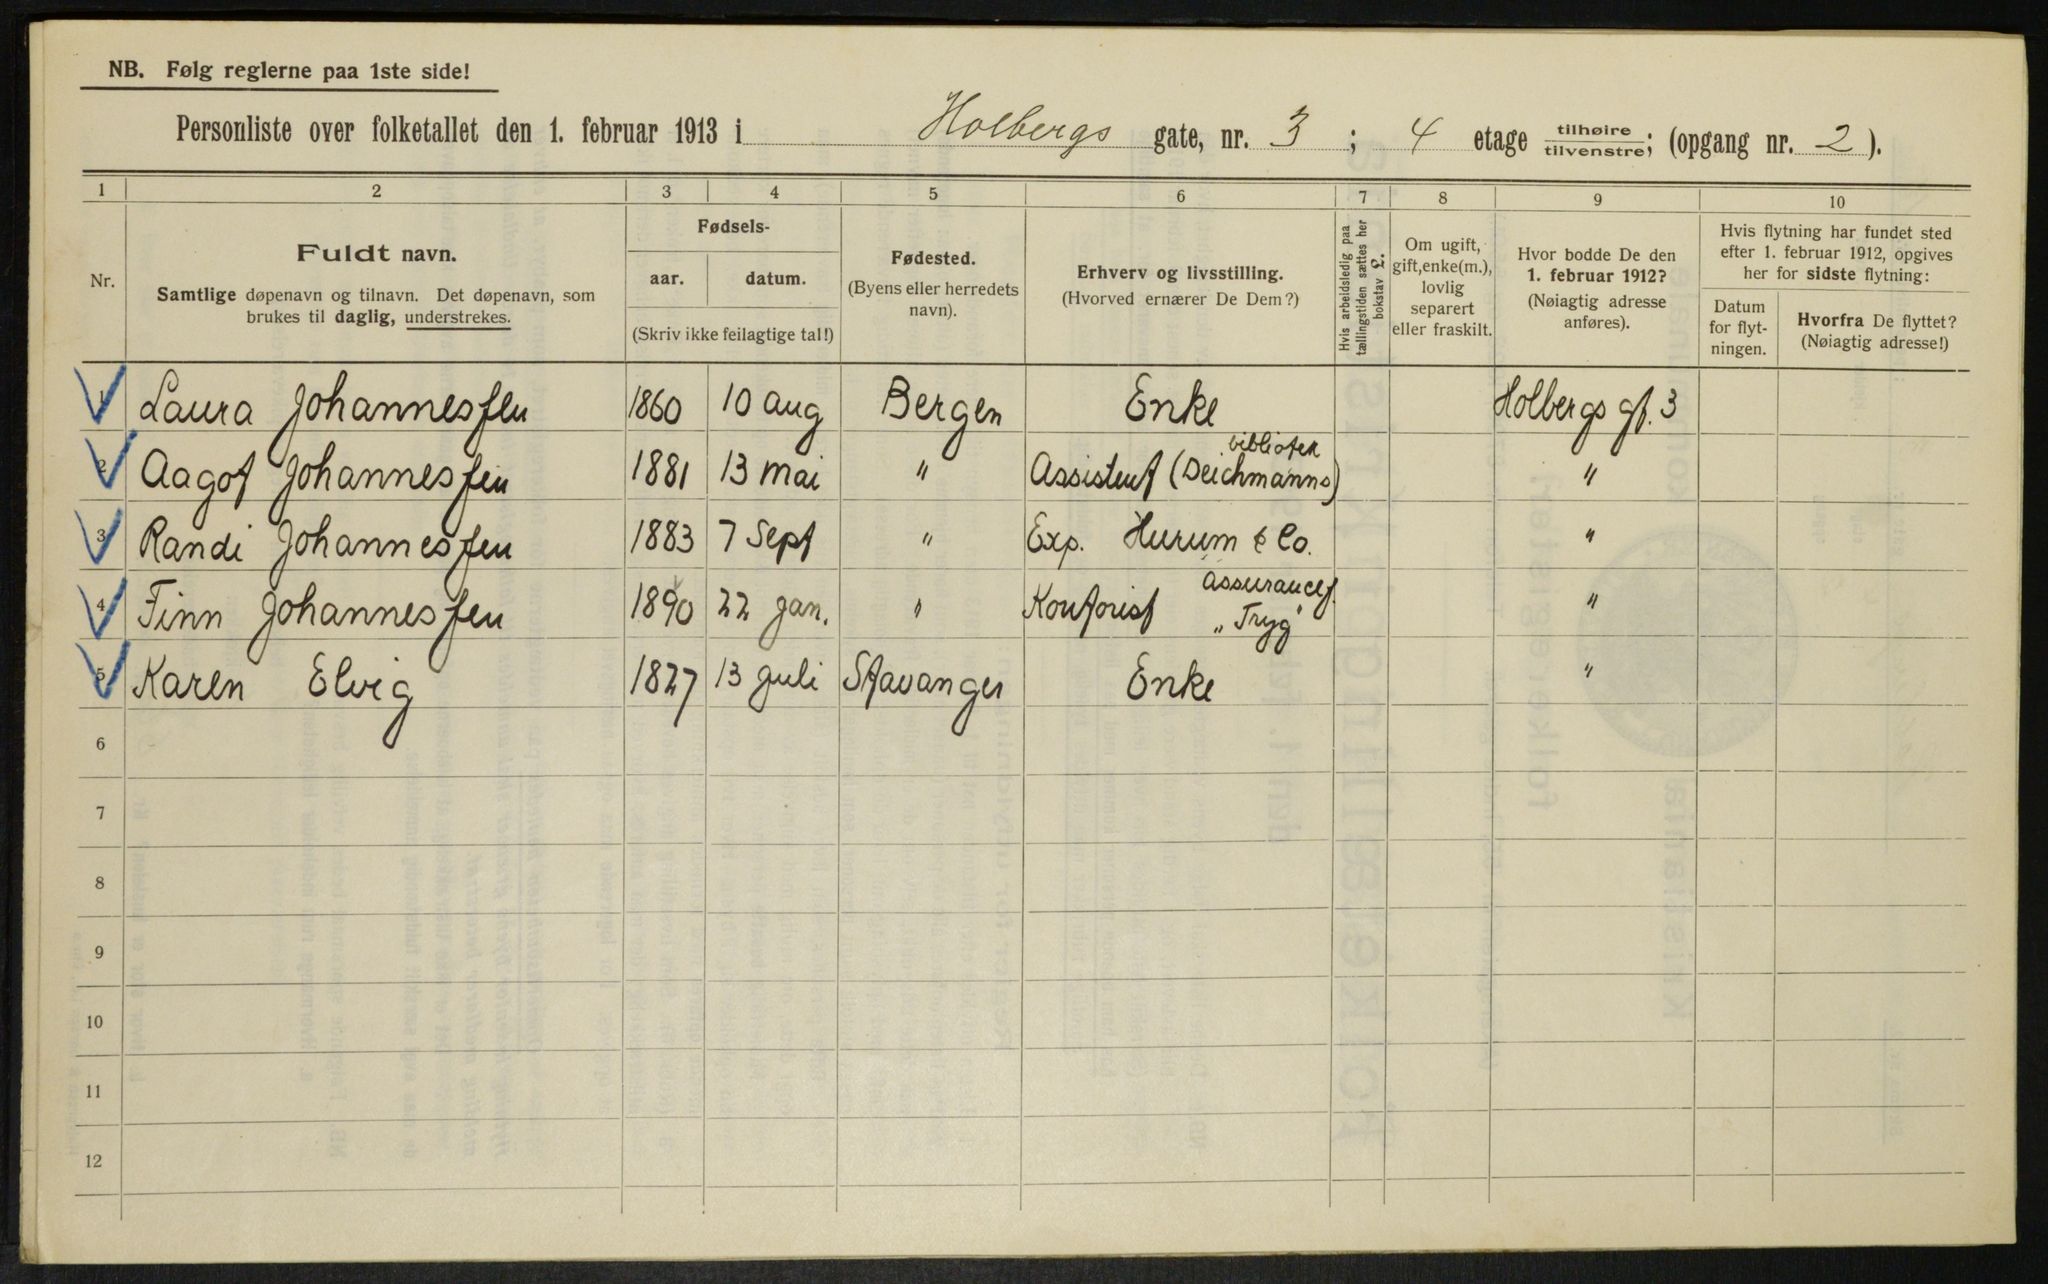 NB. Følg reglerne paa 1ste side!
Personliste over folketallet den 1. februar 1913 i Holbergs gate, nr. 3 ; 4 etage tilhøire / tilvenstre; (opgang nr. 2 ).
1 2 3 4 5 6 7 8 9 10
Nr.
Fuldt navn.
Samtlige døpenavn og tilnavn. Det døpenavn, som
brukes til daglig, understrekes.
Fødsels-
aar. datum.
(Skriv ikke feilagtige tal!)
Fødested.
(Byens eller herredets
navn).
Erhverv og livsstilling.
(Hvorved ernærer De Dem?)
Hvis arbeidsledig paa
tællingstiden sættes her
bokstav L.
Om ugift,
gift, enke(m.),
lovlig
separert
eller fraskilt.
Hvor bodde De den
1. februar 1912?
(Nøiagtig adresse
anføres).
Hvis flytning har fundet sted
efter 1. februar 1912, opgives
her for sidste flytning:
Datum
for flyt-
ningen.
Hvorfra De flyttet?
(Nøiagtig adresse!)
1 Laura Johannessen 1860 10 aug Bergen Enke Holbergs gt. 3
2 Aagot Johannessen 1881 13 mai " Assistent (Deichmanns bibliotek) "
3 Randi Johannessen 1883 7 Sept " Exp. Hurum & Co. "
4 Finn Johannessen 1890 22 jan. " Kontorist Assurancef. „Tryg" "
5 Karen Elvig 1827 13 juli Stavanger Enke "
6
7
8
9
10
11
12